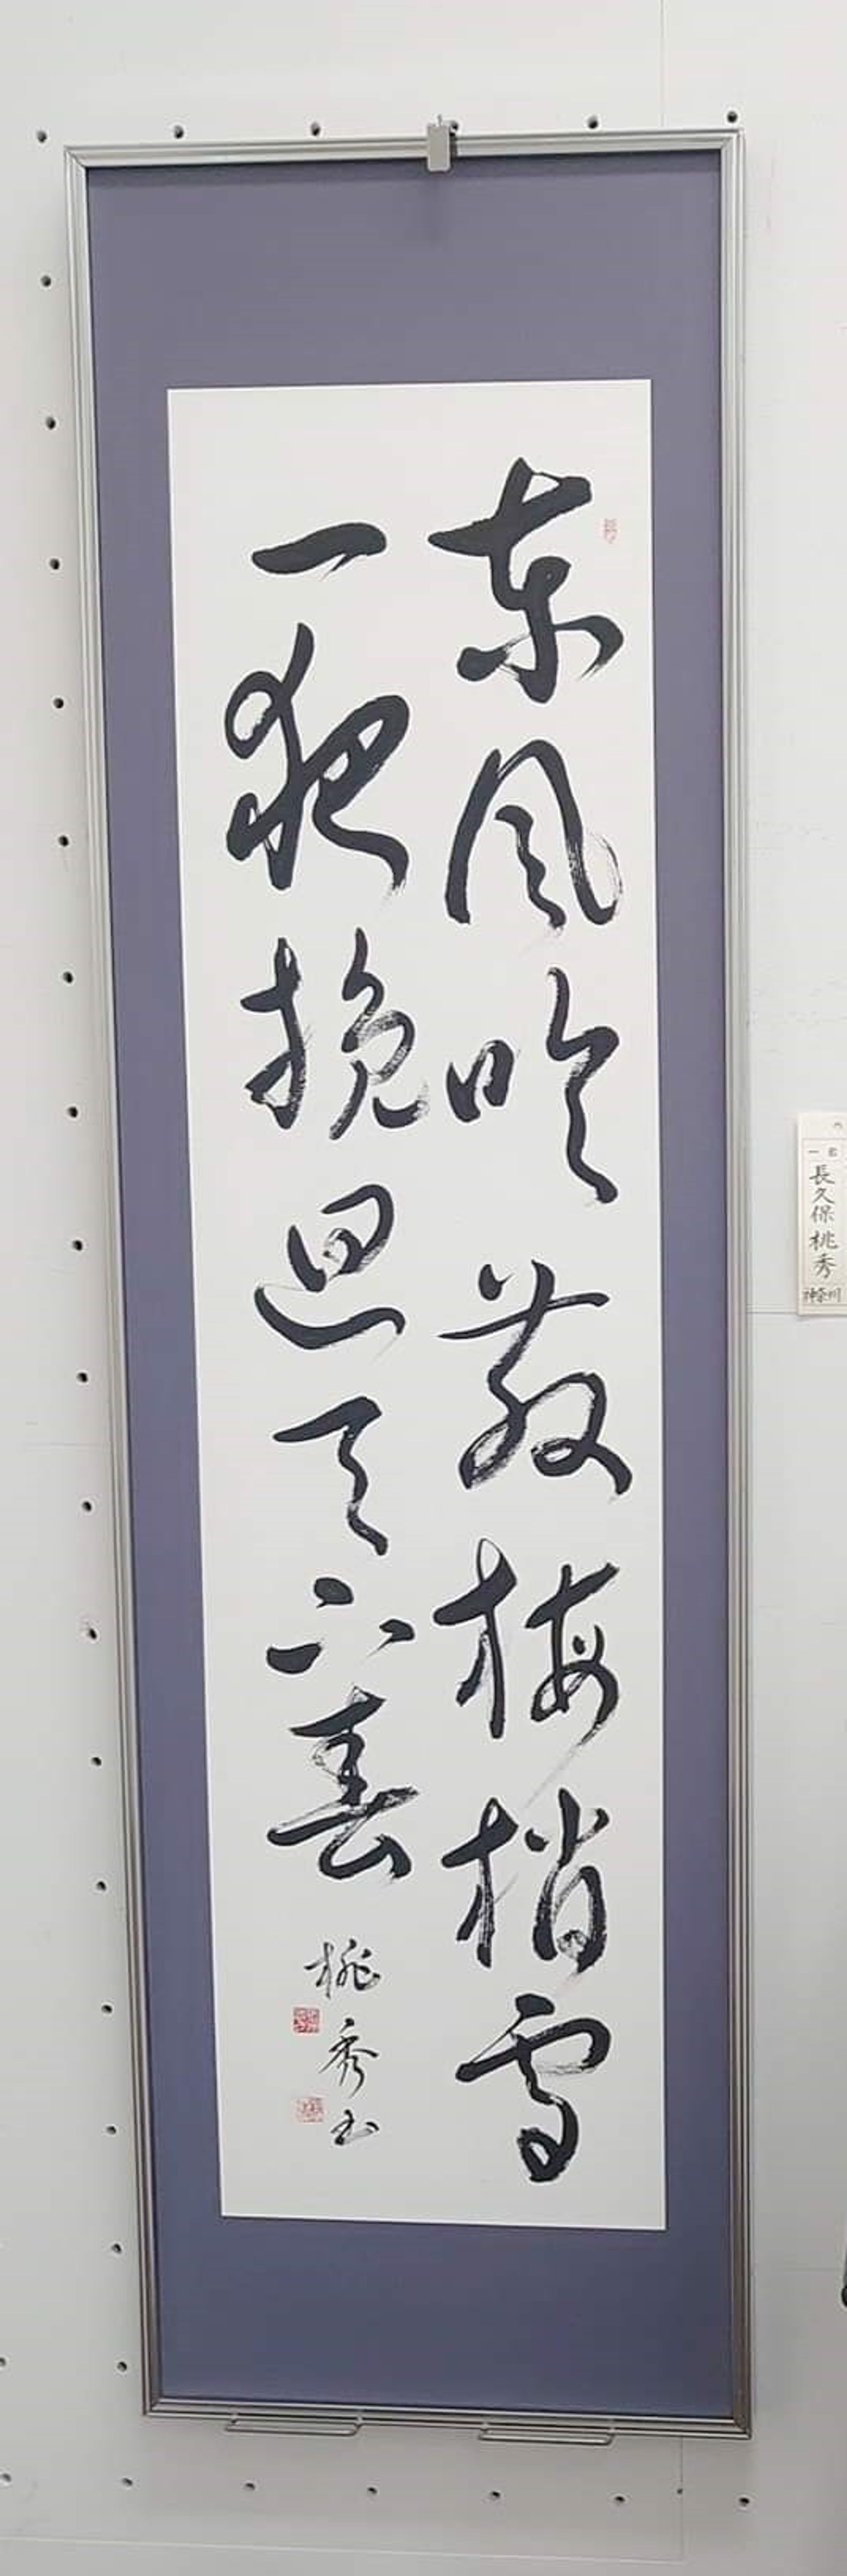 東風吹散梅梢雪
一夜挽回天下春
桃秀书
長久保桃秀
神奈川